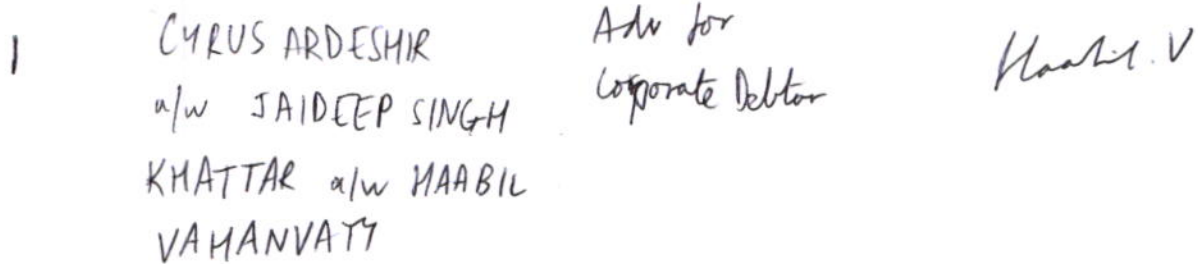 1
CYRUS ARDESHIR
a/w JAIDEEP SINGH
KHATTAR a/w HAABIL
VAHANVATY
Adv for
Corporate Debtor
Haabil. V